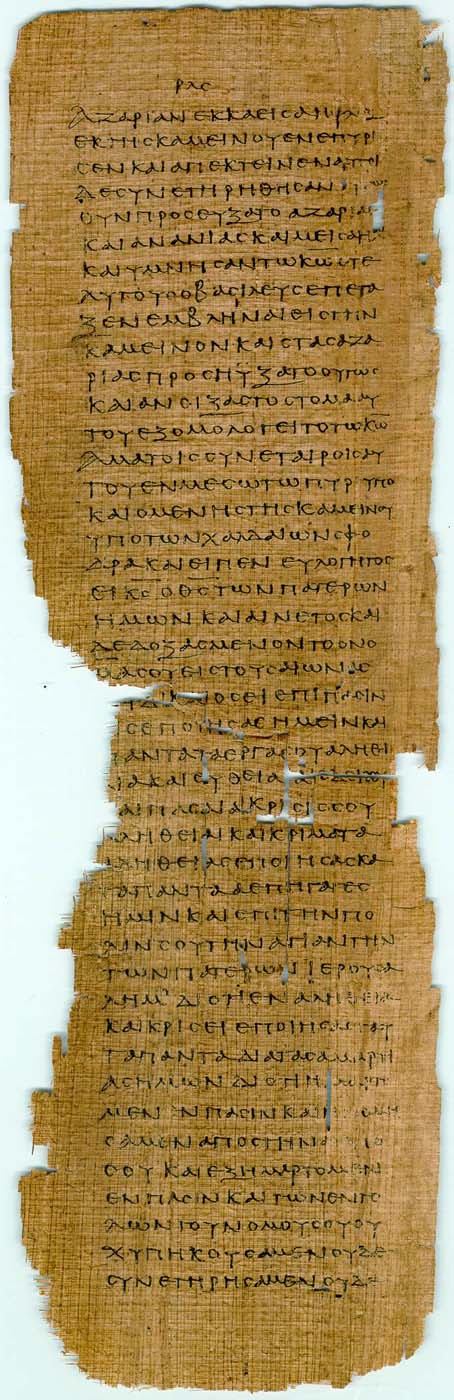 ΡΛϚ
ΑΖΑΡΙΑΝ ΕΚΚΑΕΙϹΑΗΦΛΟΞ
ΕΚΤΗϹΚΑΜΕΙΝΟΥΕΝΕΠΥΡΙ
ϹΕΝ ΚΑΙΑΠΕΚΤΕΙΝΕΝΑΥΤΟΙ
ΔΕϹΥΝΕΤΗΡΗΘΗϹΑΝ
ΟΥΝΠΡΟϹΕΥΞΑΤΟ ΑΖΑΡΙΑϹ
ΚΑΙΑΝΑΝΙΑϹΚΑΙΜΕΙϹΑΗΛ
ΚΑΙΥΜΝΗϹΑΝΤΩΚΩΟΤΕ
ΑΥΤΟΥϹΟΒΑϹΙΛΕΥϹΕΠΕΤΑ
ΞΕΝΕΜΒΛΗΝΑΙΕΙϹΤΗΝ
ΚΑΜΕΙΝΟΝΚΑΙϹΤΑϹΑΖΑ
ΡΙΑϹΠΡΟϹΗΥΞΑΤΟΟΥΤΩϹ
ΚΑΙΑΝΟΙΞΑϹΤΟϹΤΟΜΑΑΥ
ΤΟΥΕΞΟΜΟΛΟΓΕΙΤΟΤΩΚΩ
ΑΜΑΤΟΙϹϹΥΝΕΤΑΙΡΟΙϹΑΥ
ΤΟΥΕΝΜΕϹΩΤΩΠΥΡΙΥΠΟ
ΚΑΙΟΜΕΝΗϹΤΗϹΚΑΜΕΙΝΟΥ
ΥΠΟΤΩΝΧΑΛΔΑΙΩΝϹΦΟ
ΔΡΑΚΑΙΕΙΠΕΝ ΕΥΛΟΓΗΤΟϹ
ΕΙ ΚϹ ΟΘϹΤΩΝΠΑΤΕΡΩΝ
ΗΜΩΝ ΚΑΙΑΙΝΕΤΟϹΚΑΙ
ΔΕΔΟΞΑϹΜΕΝΟΝΤΟΟΝΟ
ΜΑϹΟΥΕΙϹΤΟΥϹΑΙΩΝΑϹ
ΤΙΔΙΚΑΙΟϹΕΙΕΠΙΠΑϹΙΝ
ΙϹΕΠΟΙΗϹΑϹΗΜΕΙΝΚΑΙ
ΠΑΝΤΑΤΑΕΡΓΑϹΟΥΑΛΗΘΙ
ΝΑΚΑΙΕΥΘΕΙΑΙ ΑΙΟΔΟΙϹΟΥ
ΚΑΙΠΑϹΑΙΑΙΚΡΙϹΙϹϹΟΥ
ΑΛΗΘΕΙΑΙΚΑΙΚΡΙΜΑΤΑ
ΑΛΗΘΕΙΑϹΕΠΟΙΗϹΑϹΚΑ
ΤΑΠΑΝΤΑ ΑΕΠΗΓΑΓΕϹ
ΗΜΙΝ ΚΑΙΕΠΙΤΗΝΠΟ
ΛΙΝϹΟΥΤΗΝΑΓΙΑΝΤΗΝ
ΤΩΝΠΑΤΕΡΩΝ ΙΕΡΟΥϹΑ
ΛΗΜ ΔΙΟΤΙΕΝ ΑΛΗΘΕΙΑ
ΚΑΙΚΡΙϹΕΙ ΕΠΟΙΗϹΑϹΤΑΥ
ΤΑΠΑΝΤΑΔΙΑΤΑϹΑΜΑΡΤΙ
ΑϹΗΜΩΝ ΔΙΟΤΙΗΜΑΡΤΟ
ΜΕΝ ΕΝΠΑϹΙΝΚΑΙΗΝΟΜΗ
ϹΑΜΕΝ ΑΠΟϹΤΗΝΑΙ
ϹΟΥ ΚΑΙΕΞΗΜΑΡΤΟΜΕΝ
ΕΝΠΑϹΙΝΚΑΙΤΩΝΕΝΤΟ
ΛΩΝΤΟΥΝΟΜΟΥϹΟΥΟΥ
ΧΥΠΗΚΟΥϹΑΜΕΝΟΥΔΕ
ϹΥΝΕΤΗΡΗϹΑΜΕΝΟΥΔΕ